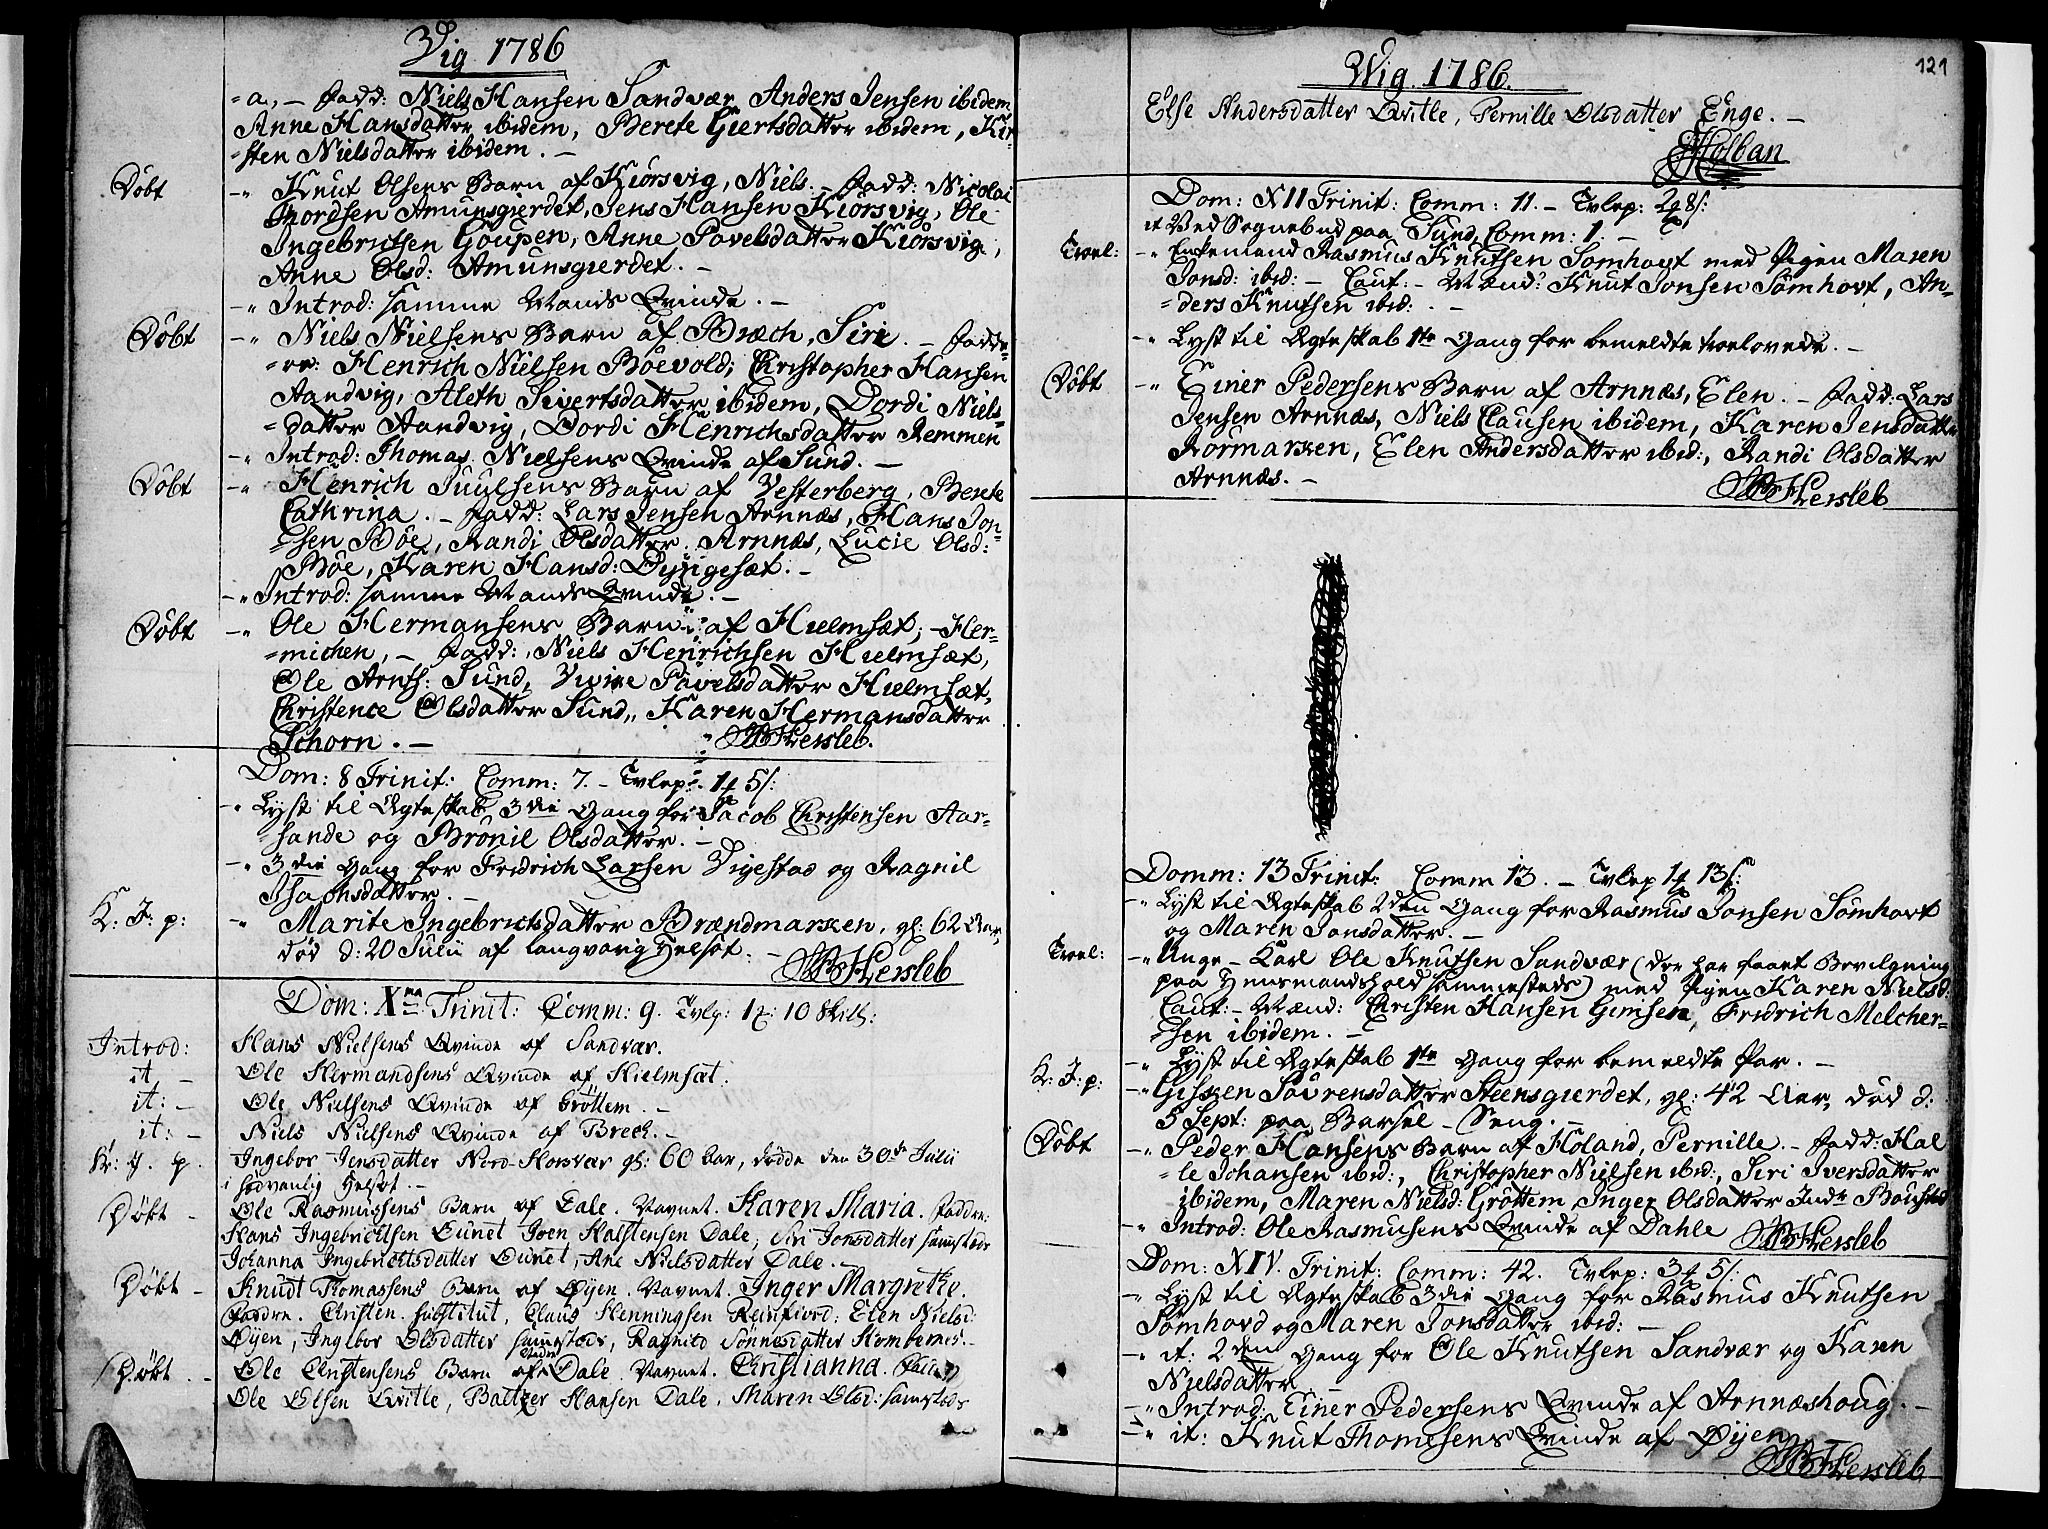 Vig 1786
=a, - Fadd: Niels Hansen Sandvær, Anders Jensen ibidem
Anne Hansdatter ibidem, Berete Giertsdatter ibidem, Kir=
=sten Nielsdatter ibidem. -
Døbt -" Knut Olsens Barn af Kiørsvig, Niels. - Fadd: Nicolai
Thordsen Amunsgierdet, Jens Hansen Kiørsvig, Ole
Ingebrictsen Goupen, Anne Povelsdatter Kiørsvig,
Anne Olsd: Amunsgierdet. -
-" Introd: samme Mands Qvinde. -
Døbt -" Niels Nielsens Barn af Bræch, Siri. - Fadde=
=re: Henrich Nielsen Böevold, Christopher Hansen
Aandvig, Aleth Sivertsdatter ibidem, Dordi Niels=
=datter Aandvig, Dordi Henrichsdatter Remmen
-" Introd: Thomas Nielsens Qvinde af Sund. -
Døbt -" Henrich Juulsens Barn af Vesterberg, Berete
Cathrina. - Fadd: Lars Jensen Arnnæs, Hans Jon=
=sen Böe, Randi Olsdatter Arnnæs, Lucie Olsd:
Böe, Karen Hansd: Dyngesæt. -
-" Introd: samme Mands Qvinde. -
Døbt -" Ole Hermansens Barn af Hielmsæt, Her=
=michen, - Fadd: Niels Henrichsen Hielmsæt,
Ole Arnts: Sund, Povelsdatter Hielmsæt,
Christence Olsdatter Sund, Karen Hermansdatter
Schorn. - Hersleb.
Dom: 8 Trinit: Comm: 7. - Tvlep: 1 5 s:
-" Lyst til Ægteskab 3die Gang for Jacob Christensen Aar=
=sande og Brönil Olsdatter. -
-" 3die Gang for Fredrich Larsen Vigestad og Ragnil
Isachsdatter. -
K: J: p: " Marite Ingebrictsdatter Brændmarken, gl: 62 Aar,
död d: 20 Julii af langvarig Helsot. -
Hersleb
Dom: Xma Trinit: Comm: 9. Tvlp: 1 10 Skill:
Introd: Hans Nielsens Qvinde af Sandvær.
it - Ole Hermandsens Qvinde af Hielmsæt.
it: - Ole Nielsens Qvinde af Gröttem. -
it: - Niels Nielsens Qvinde af Brech. -
Kr: J. p. Ingebor Jensdatter Nord-Korsvær gl: 60 Aar, dødde den 30de Julii
i sædvanlig Helsot. -
Døbt - Ole Rasmussens Barn af Dale. Navnet. Karen Maria. Faddre:
Hans Ingebrictsen Ounet Joen Halstensen Dale, Siri Jonsdatter samsteds
Johanna Ingebrictsdatter Ounet, Ane Nielsdatter Dale. -
Døbt - Knudt Thomassens Barn af Øyen. Navnet. Inger Margrethe.
Faddre. Christen Substitut, Claus Henningsen Reinfiord: Elen Nielsd:
Øyen, Ingebor Olsdatter samesteds, Ragnild Sönnesdatter
Døbt - Ole Christensens Barn af Nedre Dale. Navnet. Christianna. Faddre
Ole Olsen Qville, Baltzer Hansen Dale, Maren Olsd: samsteds
Wig 1786.
121
Else Andersdatter Qville, Pernille Olsdatter Enge. -
Holban
Dom: XII Trinit: Comm: 11. - Tvlep: 2 8 s:
it Ved Sognebud paa Sund, Comm: 1. -
Trol: -" Enkemand Rasmus Knutsen Somhovt med Pigen Maren
Jonsd: ibid: - Caut: - Mænd: Knut Jonsen Sömhovt, An=
=ders Knutsen ibid: -
-" Lyst til Ægteskab 1te Gang for bemeldte trolovede. -
Døbt -" Einer Pedersens Barn af Arnnæs, Elen. - Fadd: Lars
Jensen Arnnæs, Niels Clausen ibidem, Karen Jensdatter
Kormarken, Elen Andersdatter ibid:, Randi Olsdatter
Arnnæs. - Hersleb
Domm: 13 Trinit: Comm 13. - Tvlep 1 13 s:
-" Lyst til Ægteskab 2den Gang for Rasmus Jonsen Sömhovt
og Maren Jonsdatter. -
Trol: -" Unge-Karl Ole Knutsen Sandvær (der har faaet Bevilgning
paa Hiemsmandshold sammesteds) med Pigen Karen Nielsd:
Caut: - Mænd: Christen Hansen Gimsen, Fredrich Melcher=
=sen ibidem. -
-" Lyst til Ægteskab 1te Gang for bemeldte Par. -
K: J: p: -" Gisken Sörensdatter Steensgierdet, gl: 42 Aar, död d:
5 Sept: paa Barsel-Seng. -
Døbt -" Peder Hansens Barn af Holand, Pernille. - Fadd: Hal
=le Johansen ibid:, Christopher Nielsen ibid:, Siri Iversdatter
ibidem, Maren Nielsd: Gröttem, Inger Olsdatter Indr
-" Introd: Ole Rasmusens Qvinde af Dahle Hersleb
Dom: XIV. Trinit: Comm: 42. Tvlep: 3 5 s:
-" Lyst til Ægteskab 3die Gang for Rasmus Knutsen
Somhovd og Maren Jonsdatter ibid: -
-" it: 2den Gang for Ole Knutsen Sandvær og Karen
Nielsdatter
-" Introd: Einer Pedersens Qvinde af Arnnæshoug. -
-" it: Knut Thomesens Qvinde af Øyen
Hersleb